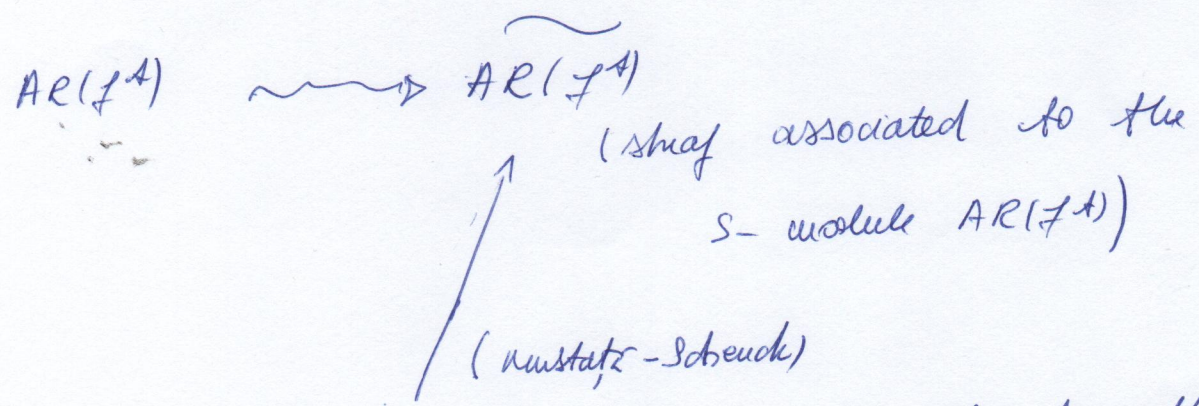 AR(f^A) ⟿ \widetilde{AR(f^A)}
(sheaf associated to the
S-module AR(f^A))
(Mustaţă-Schenck)